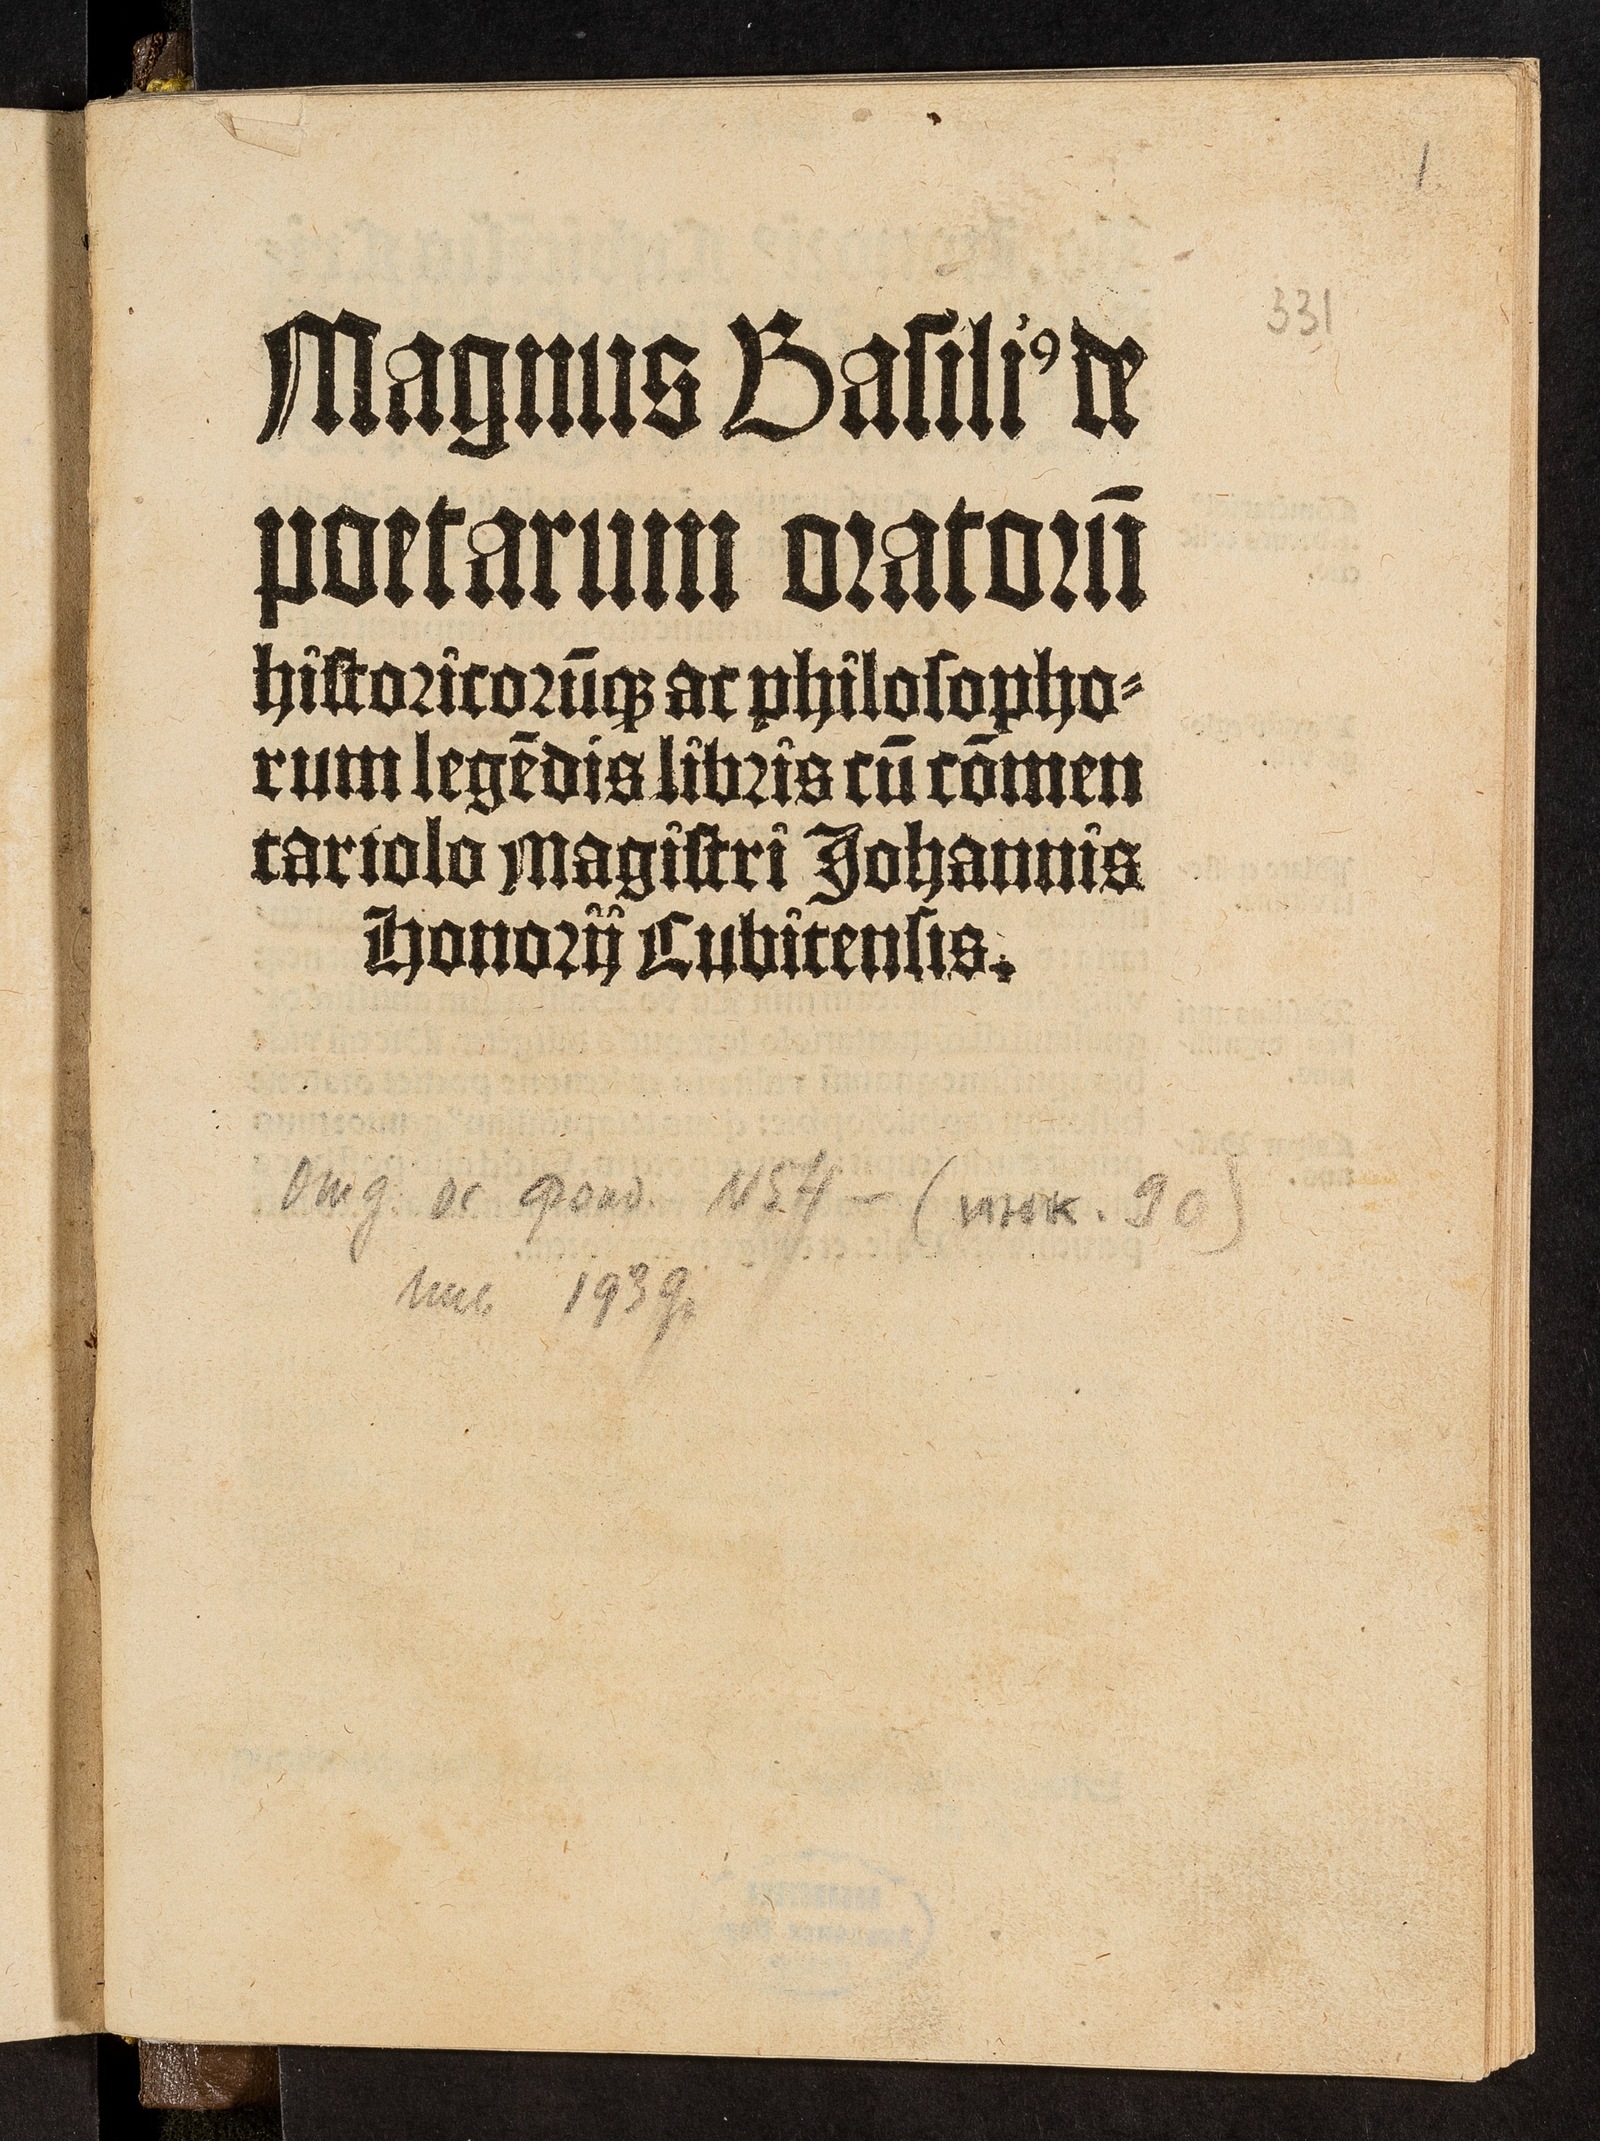 1
331
Magnus Basiliꝰ de
poetarum oratorū
historicorūqꝫ ac philosopho⸗
rum legēdis libris cū cōmen
tariolo Magistri Johannis
Honorij Cubitensis.
фонд. N54 – (инк. 90)
1939